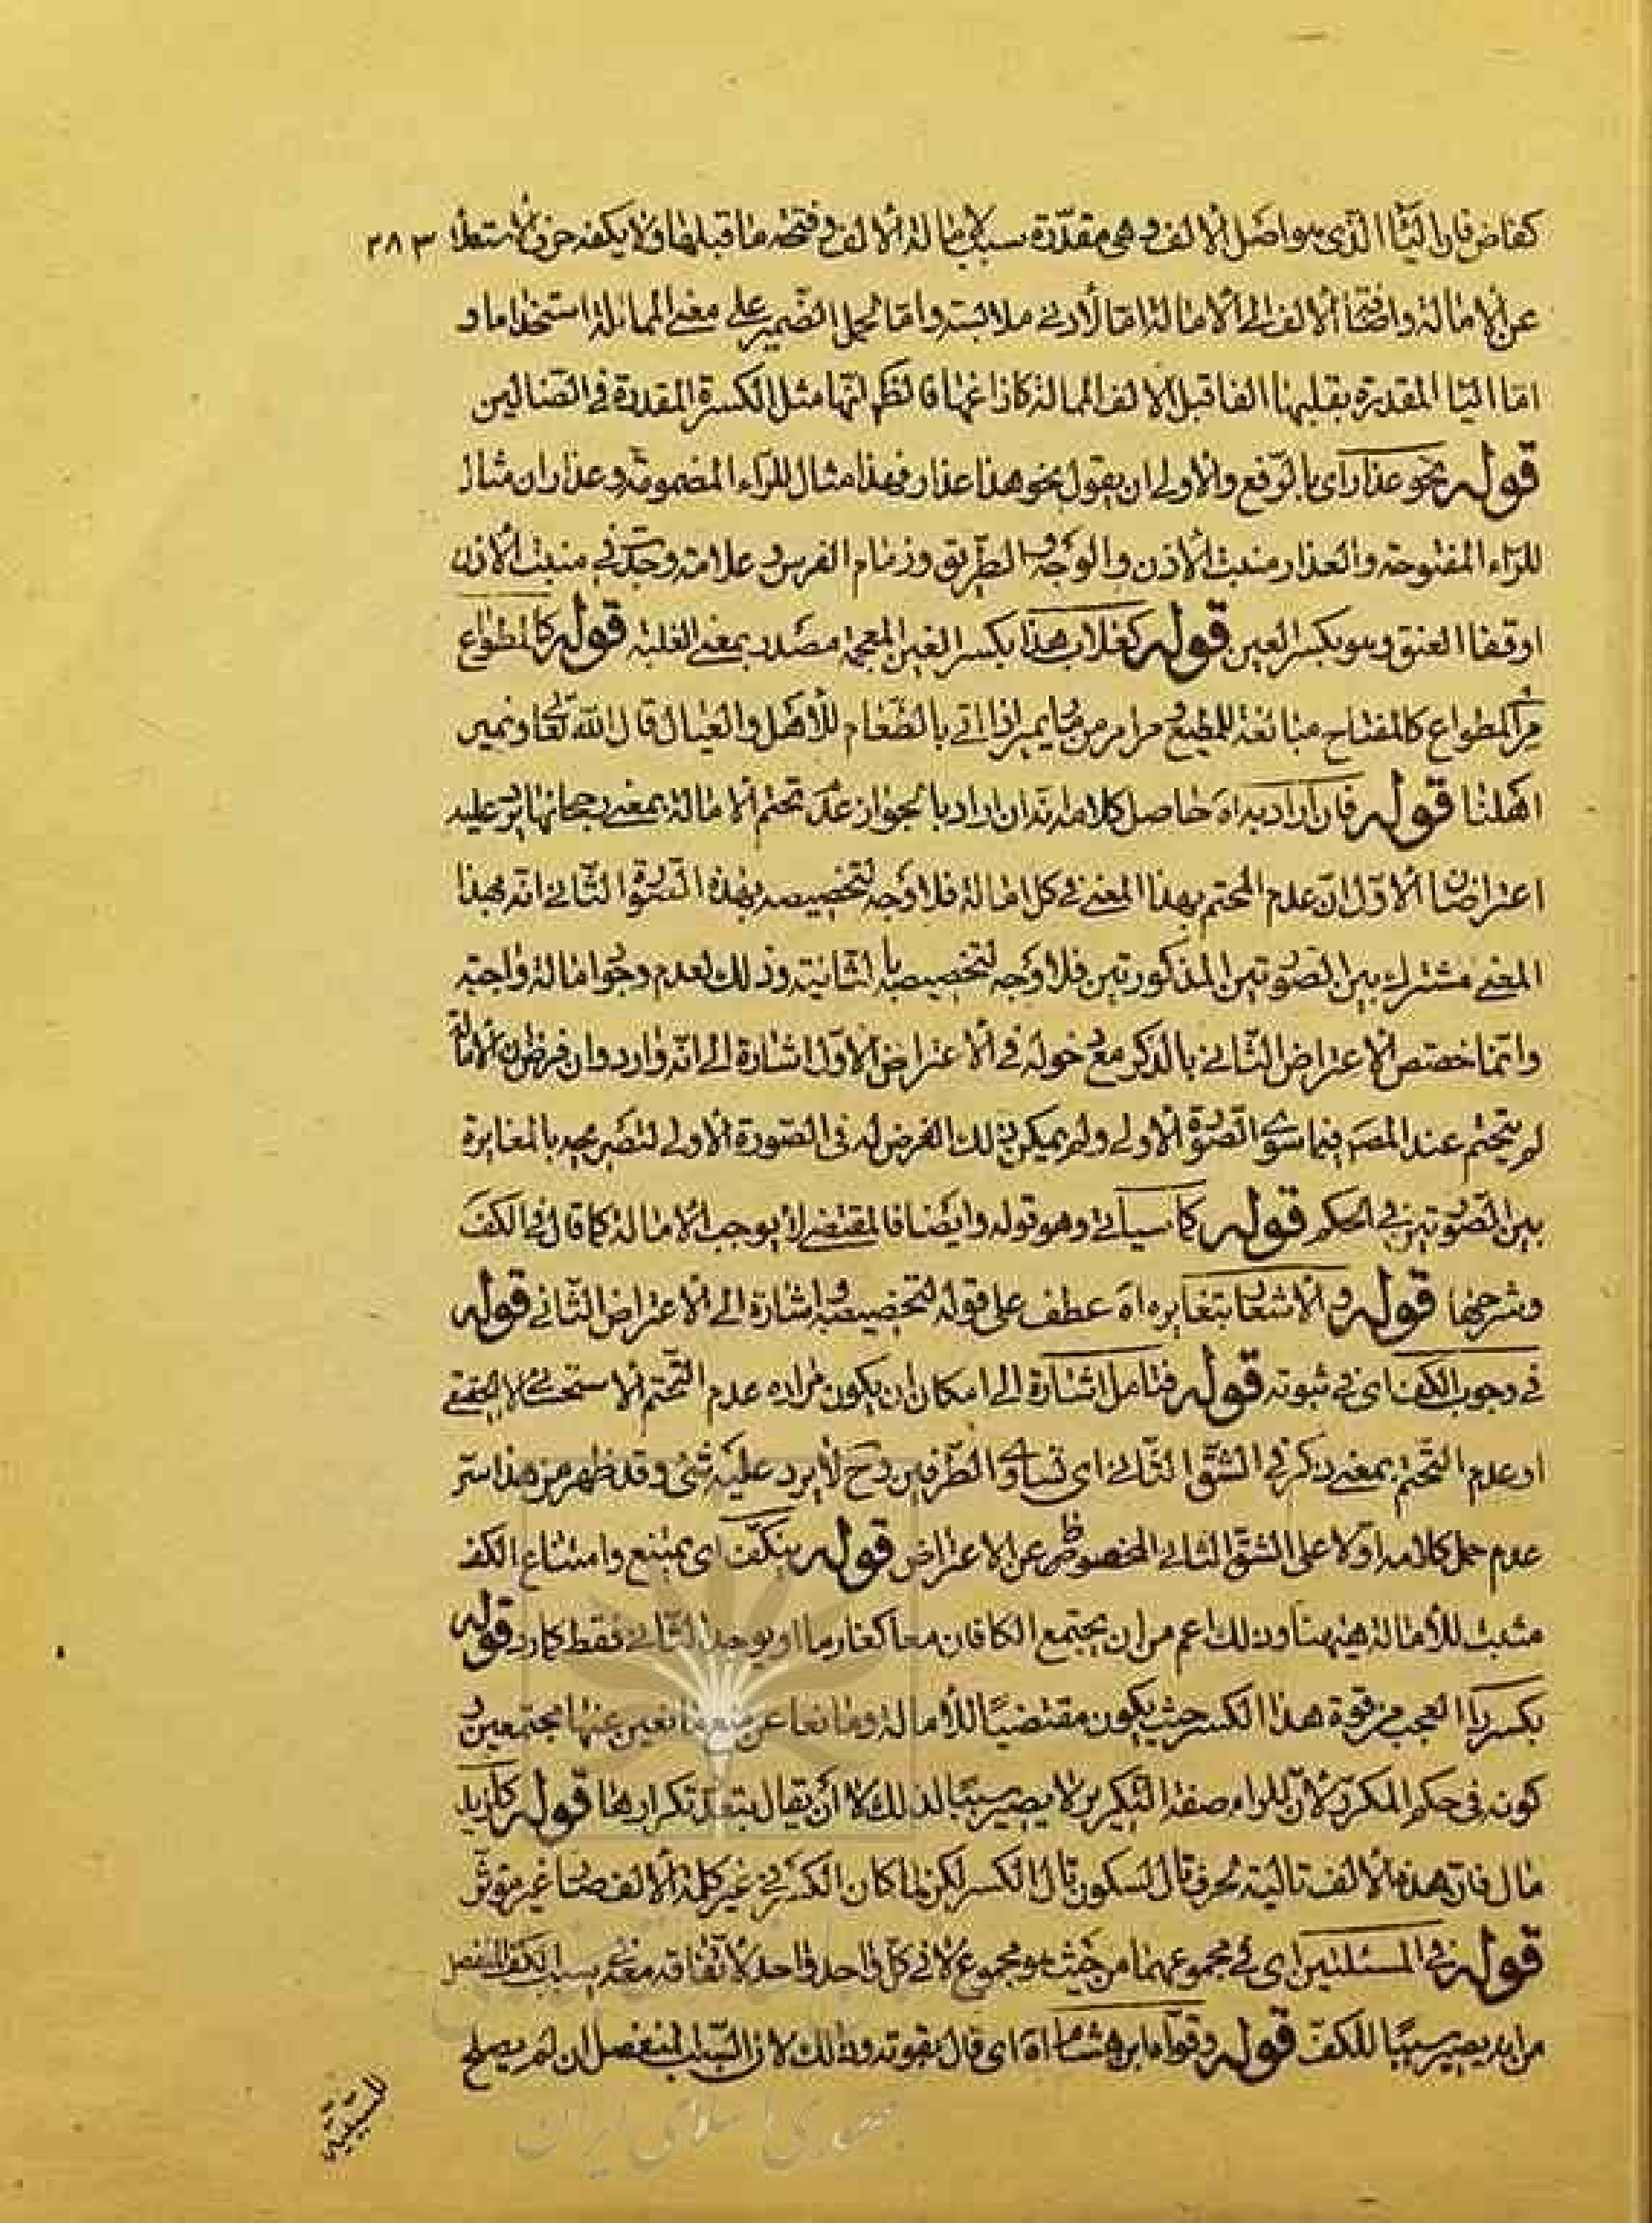 كقاض فان اليا الذى هو اصل الالف و هى مقدرة سبب لامالة الالف و فتحة ما قبلها ولا يكفه حرف الاستعلا ٢٨٣
عن الامالة واضافة الالف الى الامالة اما لادنى ملابسة واما لحمل الضمير على معنى الممالة استخداما و
اما اليا المقدرة بقلبها الفا قبل الالف الممالة مثل الكسرة المقدرة فى الضالين
قوله نحو عذار اى بالرفع والاولى ان يقول نحو هذا عذار فهذا مثال للراء المضمومة وعذاران مثال
للراء المفتوحة والعذار منبت الاذن والوجه و الطريق وزمام الفرس و علامة وحك فى منبت الاذن
او قفا العنق وهو بكسر العين قوله كغلاب هذا بكسر الغين المعجمة مصدر بمعنى الغلبة قوله كالمطواع
مر المطواع كالمفتاح مبالغة للمطيع مر امر من مار يمير اذا اتى بالطعام للاهل والعيال قال الله تعا ونمير
اهلنا قوله فان اراد به اه حاصل كلامه انه ان اراد بالجواز عدم تحتم الامالة بمعنى رجحانها يرد عليه
اعتراضان الاول ان عدم التحتم بهذا المعنى فى كل امالة فلا وجه لتخصيصه بهذه الصورة الثانى انه بهذا
المعنى مشترك بين الصورتين المذكورتين فلا وجه لتخصيصه بالثانية وذلك لعدم وجوب امالة واجبة
وانما خصص الاعتراض الثانى بالذكر مع دخوله فى الاعتراض الاول اشارة الى انه وارد وان فرض ان الامالة
لم يتحتم عند المصـ فيما سوى الصورة الاولى ولم يمكن ذلك الفرض له فى الصورة الاولى لتصريحه بالمغايرة
بين الصورتين فى الحكم قوله كما سياتى وهو قوله وايضا فالمقتضى لا يوجب الامالة كما قال فى الكف
وشرحها قوله و الاشعار بتغايره اه عطف على قوله لتخصيصه اشارة الى الاعتراض الثانى قوله
فى وجوب الكف اى فى ثبوته قوله فتامل اشارة الى امكان ان يكون مراده عدم التحتم الاستحسانى لا الحقيقى
او عدم التحتم بمعنى ذكر فى الشق الثانى اى تساوى الطرفين وح لا يرد عليه شئ وقد ظهر من هذا سر
عدم حمل كلامه اولا على الشق الثانى عن الاعتراض قوله ينكف اى يمتنع وامتناع الكف
مثبت للامالة ههنا وذلك اعم من ان يجتمع الكافان معا كغارما او يوجد الثانى فقط كما رد قوله
بكسر را العجب من قوة هذا الكسر حيث يكون مقتضيا للامالة ومانعا عن منع مانعين عنها مجتمعين و
كونه فى حكم المكرر لان للراء صفة التكرير لا يصير سببا لذلك الا ان يقال بتعدد تكرارها قوله كلزيد
مال فان هذه الالف تالية لحرف تال لسكون تال الكسر لكن لما كان الكسر فى غير كلمة الالف صار غير مؤثر
قوله فى المسئلتين اى فى مجموعهما من حيث هو مجموع لا فى كل واحد واحد لاتفاقه معه بسبب الكف المنفصل
من ايد يصير سببا للكف قوله وقواه ابن هشام اه اى قال بقوته وذلك لان السبب المنفصل ان لم يصلح
للسببية